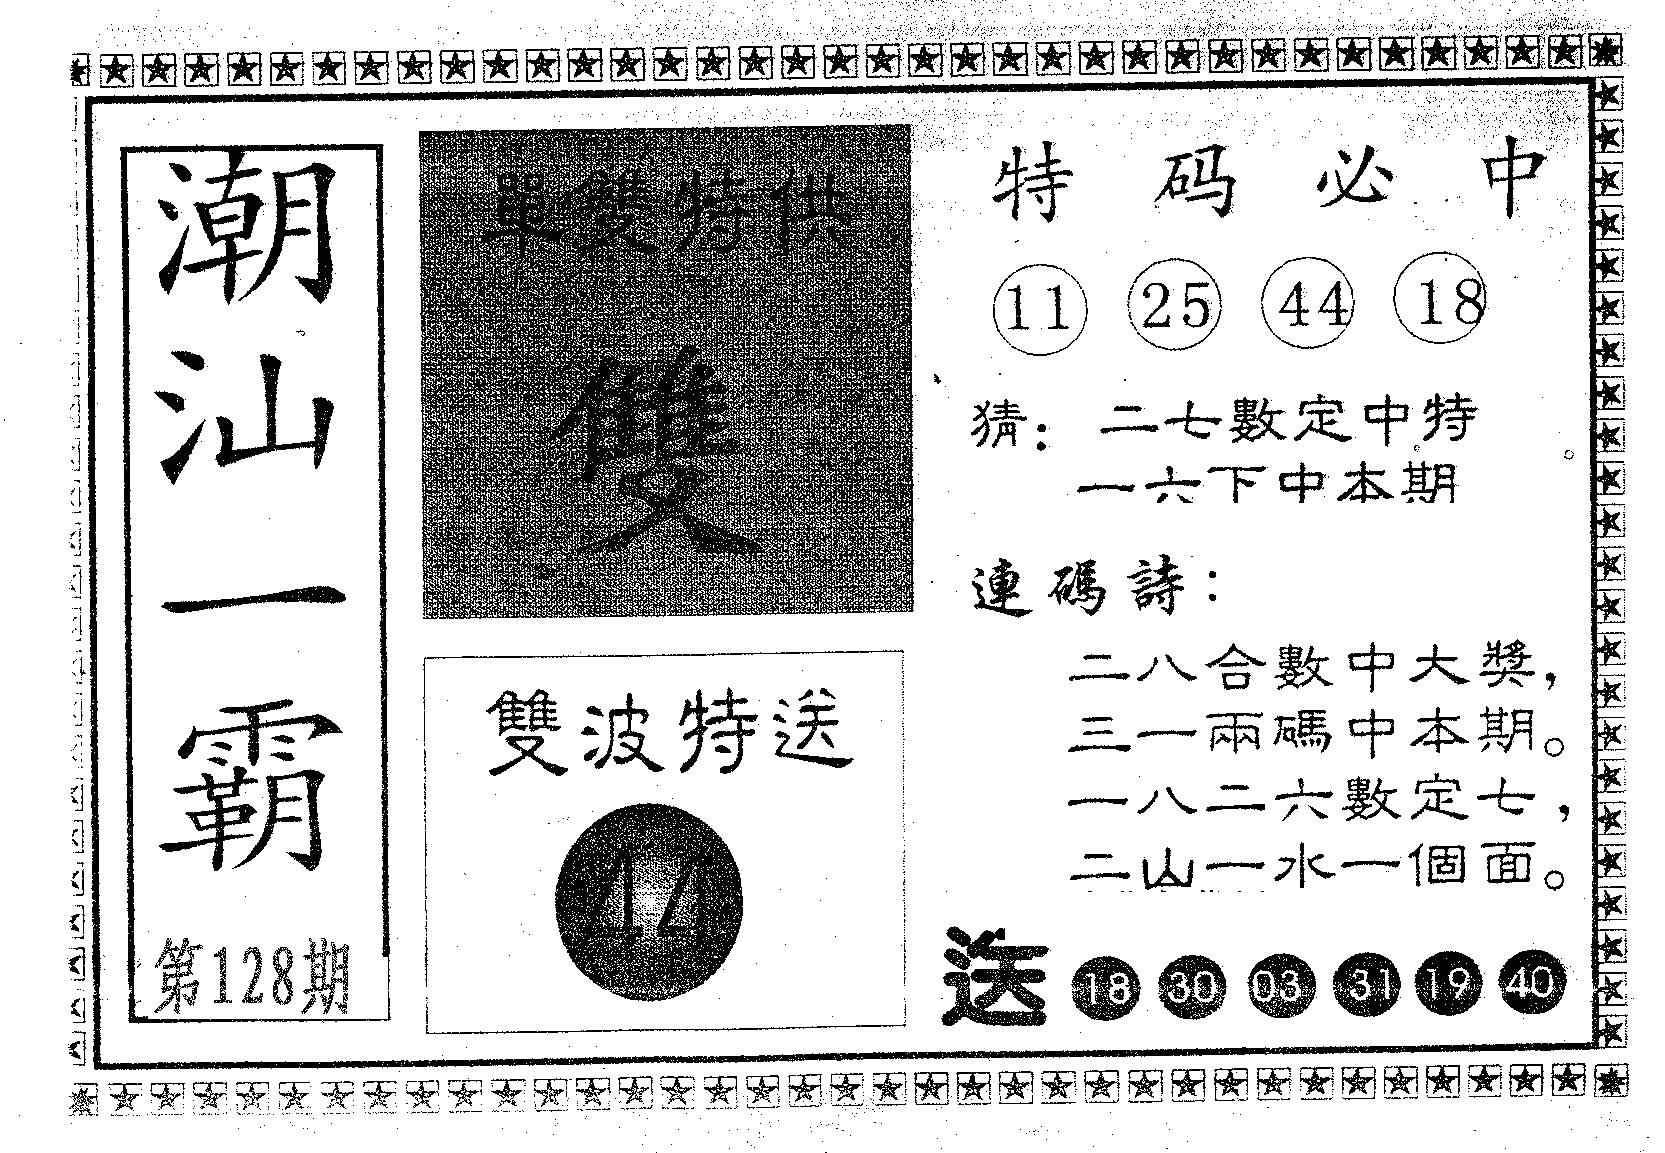 潮汕一霸
第128期
單雙特供
雙
雙波特送
44
特码必中
11 25 44 18
猜：二七數定中特
一六下中本期
連碼詩：
二八合數中大獎，
三一兩碼中本期。
一八二六數定七，
二山一水一個面。
送 18 30 03 31 19 40